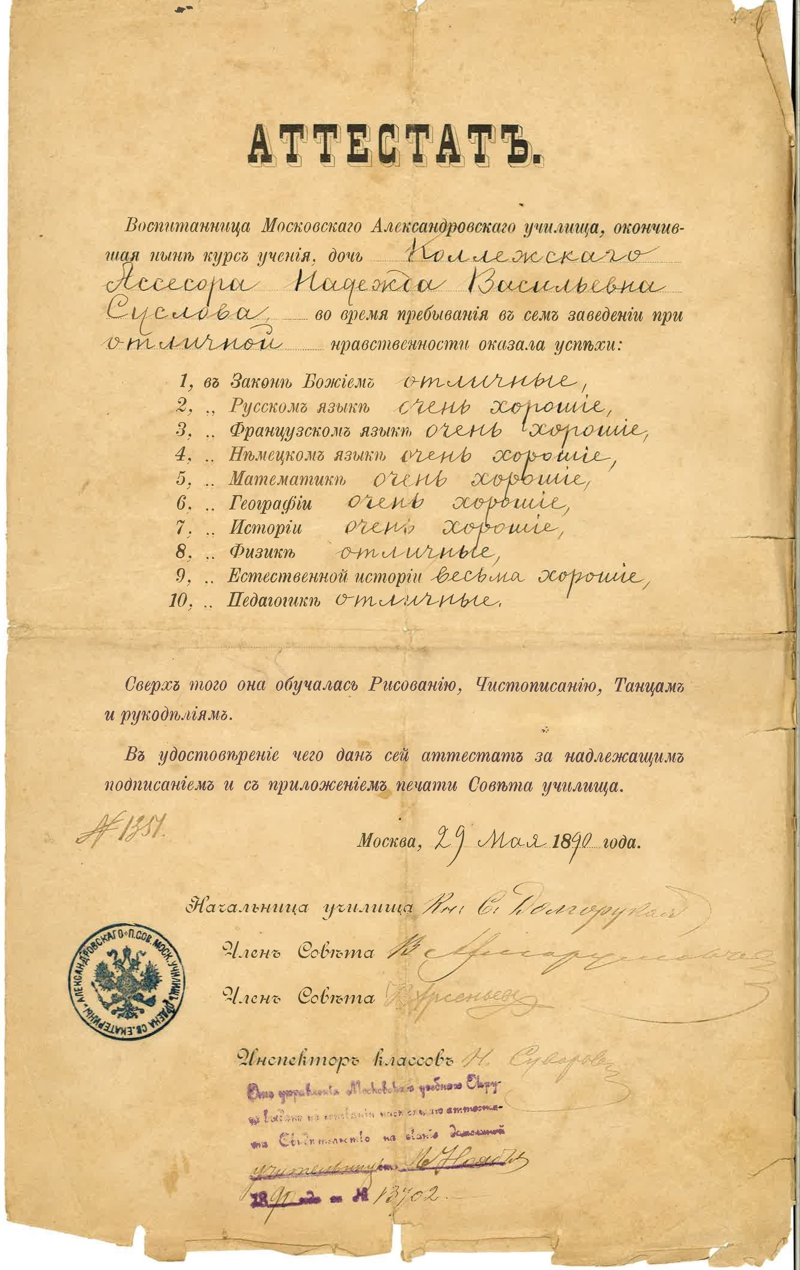 АТТЕСТАТЪ.
Воспитанница Московскаго Александровскаго училища, окончив-
шая нынѣ курсъ ученія, дочь Коллежскаго
Ассесора Надежда Васильевна
Суслова, во время пребыванія въ семъ заведеніи при
отличной нравственности оказала успѣхи:
1, въ Законѣ Божіемъ отличные,
2. ,, Русскомъ языкѣ очень хорошіе,
3. ,, Французскомъ языкѣ очень хорошіе,
4. ,, Нѣмецкомъ языкѣ очень хорошіе,
5. ,, Математикѣ очень хорошіе,
6. ,, Географіи очень хорошіе,
7. ,, Исторіи очень хорошіе,
8. ,, Физикѣ отличные,
9. ,, Естественной исторіи весьма хорошіе,
10. ,, Педагогикѣ отличные.
Сверхъ того она обучалась Рисованію, Чистописанію, Танцамъ
и рукодѣліямъ.
Въ удостовѣреніе чего данъ сей аттестатъ за надлежащимъ
подписаніемъ и съ приложеніемъ печати Совѣта училища.
№ 1351.
Москва, 29 Мая 1890 года.
Начальница училища Кн. С. Долгорукая
Членъ Совѣта В
Членъ Совѣта Арсеньевъ
Инспекторъ классовъ Н. Суворовъ
Отъ управленія Московскаго учебнаго Окру-
га выдано на основаніи сего аттеста-
та Свидѣтельство на званіе домашней
учительницы
189 года за № 13702